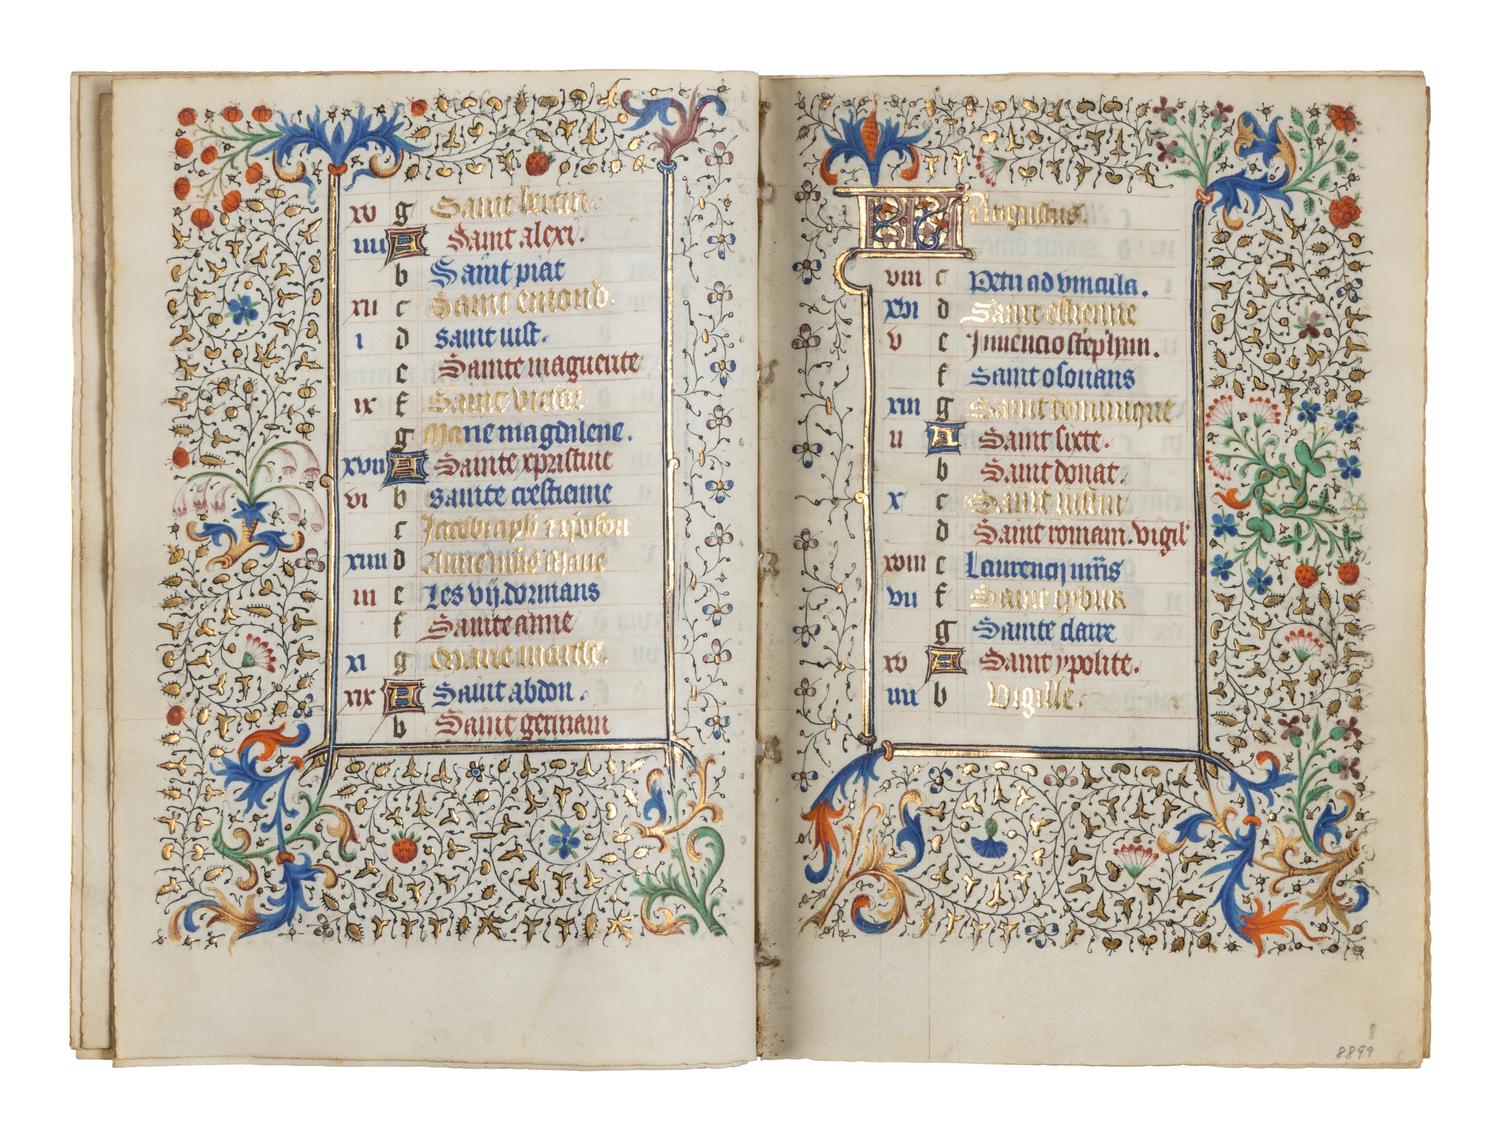 xv g Saint bertin.
iiii A Saint alexi.
b Saint piat
xii c Saint emond.
i d Saint iust.
e Sainte maguerite
ix f Saint victor
g Marie magdalene.
xvii A Sainte xpristine
vi b Sainte crestienne
c Jacobi apli
xiiii d
iii e Les vij. dormans
f Sainte anne
xi g Marie marthe.
xix A Saint abdon.
b Saint germain
Augustus.
viii c Petri ad vincula.
xvi d Saint estienne
v e Inuencio stephni.
f Saint osouans
xiii g Saint dominique
ii A Saint sixte.
b Saint donat.
x c Saint iustin
d Saint romain. vigil'
xviii e Laurencij
vii f Saint tybur
g Sainte claire
xv A Saint ypolite.
iiii b Vigille.
8
8899